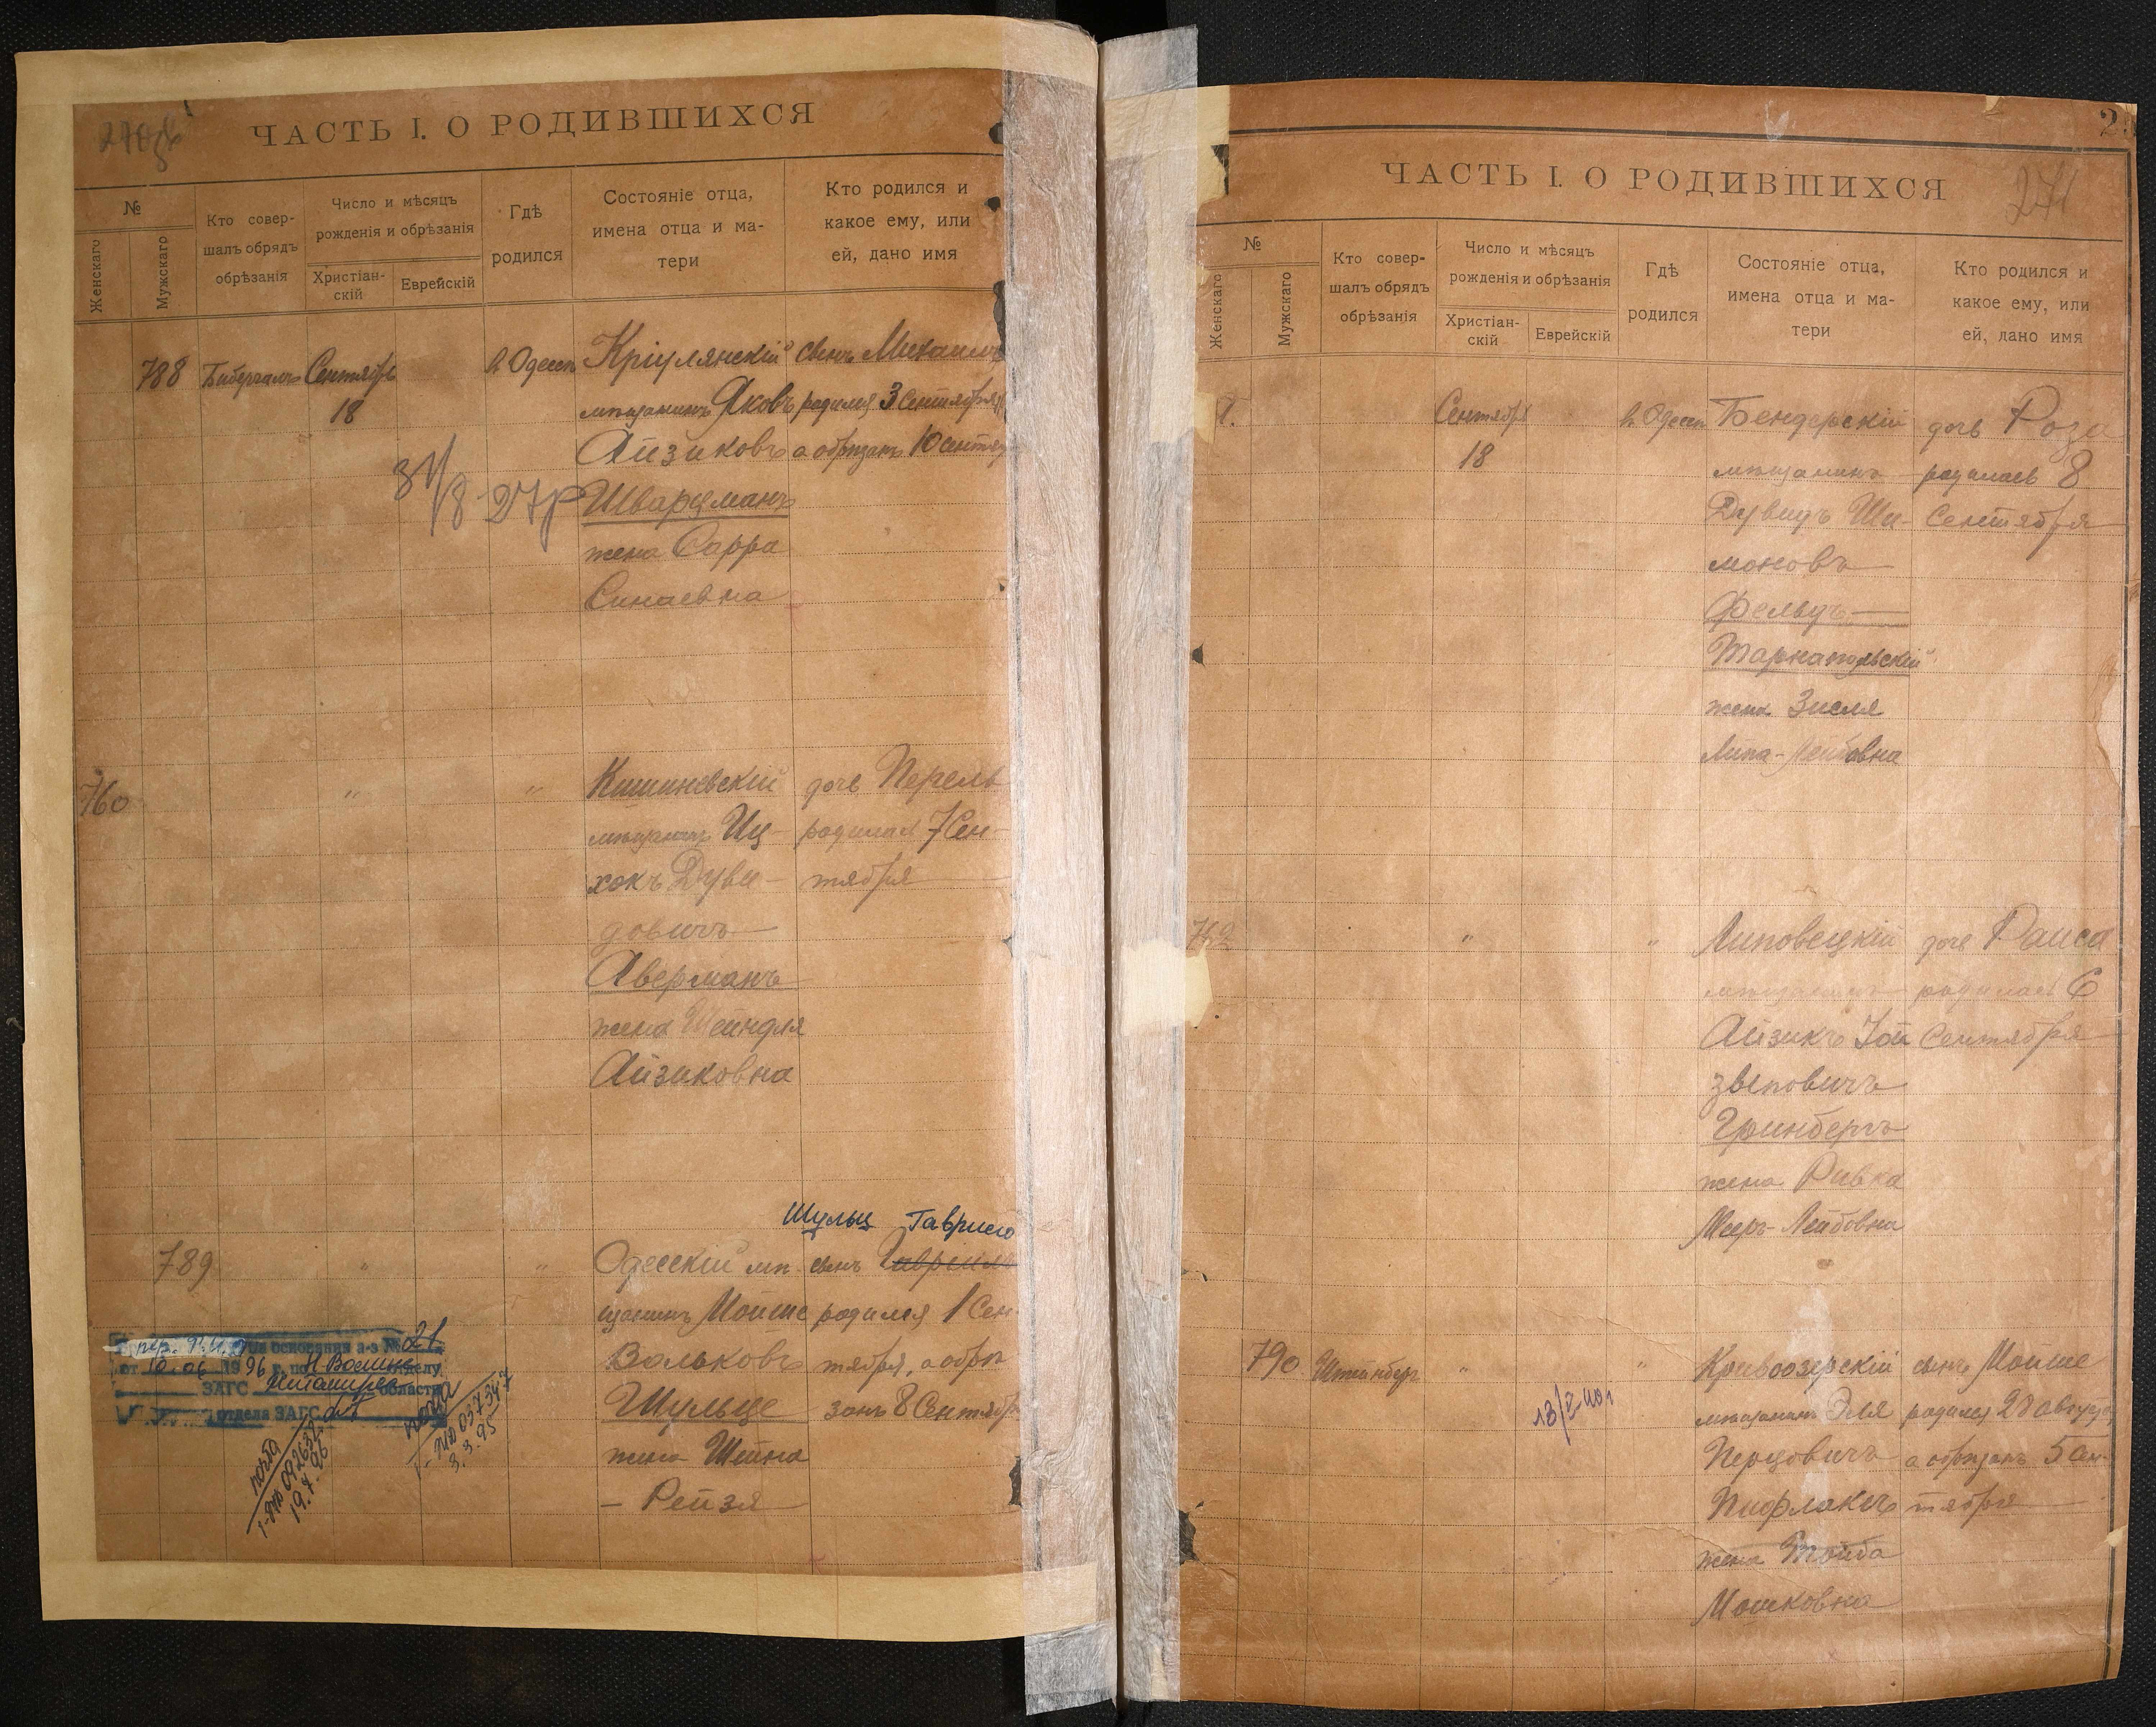 270 об
ЧАСТЬ I. О РОДИВШИХСЯ
№
Женскаго
Мужскаго
Кто совер-
шалъ обрядъ
обрѣзанія
Число и мѣсяцъ
рожденія и обрѣзанія
Христіан-
скій
Еврейскій
Гдѣ
родился
Состояніе отца,
имена отца и ма-
тери
Кто родился и
какое ему, или
ей, дано имя
788
Сентябрь
18
в Одессѣ
Кріулянскій
мѣщанинъ Яковъ
Айзиковъ
Шварцманъ
жена Сарра
Синаевна
сынъ Михаилъ
родился 3 Сентября
а обрѣзанъ 10 сентя
27р
760
"
"
Кишиневскій
мѣщанинъ Иц-
хокъ Дуви-
довичъ
Аверманъ
жена Шейндля
Айзиковна
дочь Перель
родилась 7 Сен-
тября
789
"
"
Одесскій мѣ
щанинъ Мойше
Вольковъ
Шульце
жена Шейна
- Рейзя
Шульц Гаврило
сынъ
родился 1 Сен-
тября, а обрѣ
занъ 8 Сентябр
на основании а-з № 21
от 10.06 1996 г. по Н Волинс отделу
ЗАГС Житомирск области
отдела ЗАГС
пошта
19.7.96
037347
3.3.95
2
271
ЧАСТЬ I. О РОДИВШИХСЯ
№
Женскаго
Мужскаго
Кто совер-
шалъ обрядъ
обрѣзанія
Число и мѣсяцъ
рожденія и обрѣзанія
Христіан-
скій
Еврейскій
Гдѣ
родился
Состояніе отца,
имена отца и ма-
тери
Кто родился и
какое ему, или
ей, дано имя
Сентябрь
18
в Одессѣ
Бендерскій
мѣщанинъ
Дувидъ Ши-
моновъ
Фельдъ
Тарнапольскій
жена Зисля
Липа-Лейбовна
дочь Роза
родилась 8
Сентября
762
"
"
Липовецкій
мѣщанинъ
Айзикъ Іой
звѣповичъ
Гринбергъ
жена Ривка
Меер-Лейбовна
дочь Раиса
родилась 6
Сентября
790
Штейнберг
"
"
Кривоозерскій
мѣщанинъ Эля
Перцовичъ
Пифлакъ
жена Тойба
Мошковна
сынъ Мойше
родился 28 августа
а обрѣзанъ 5 сен-
тября